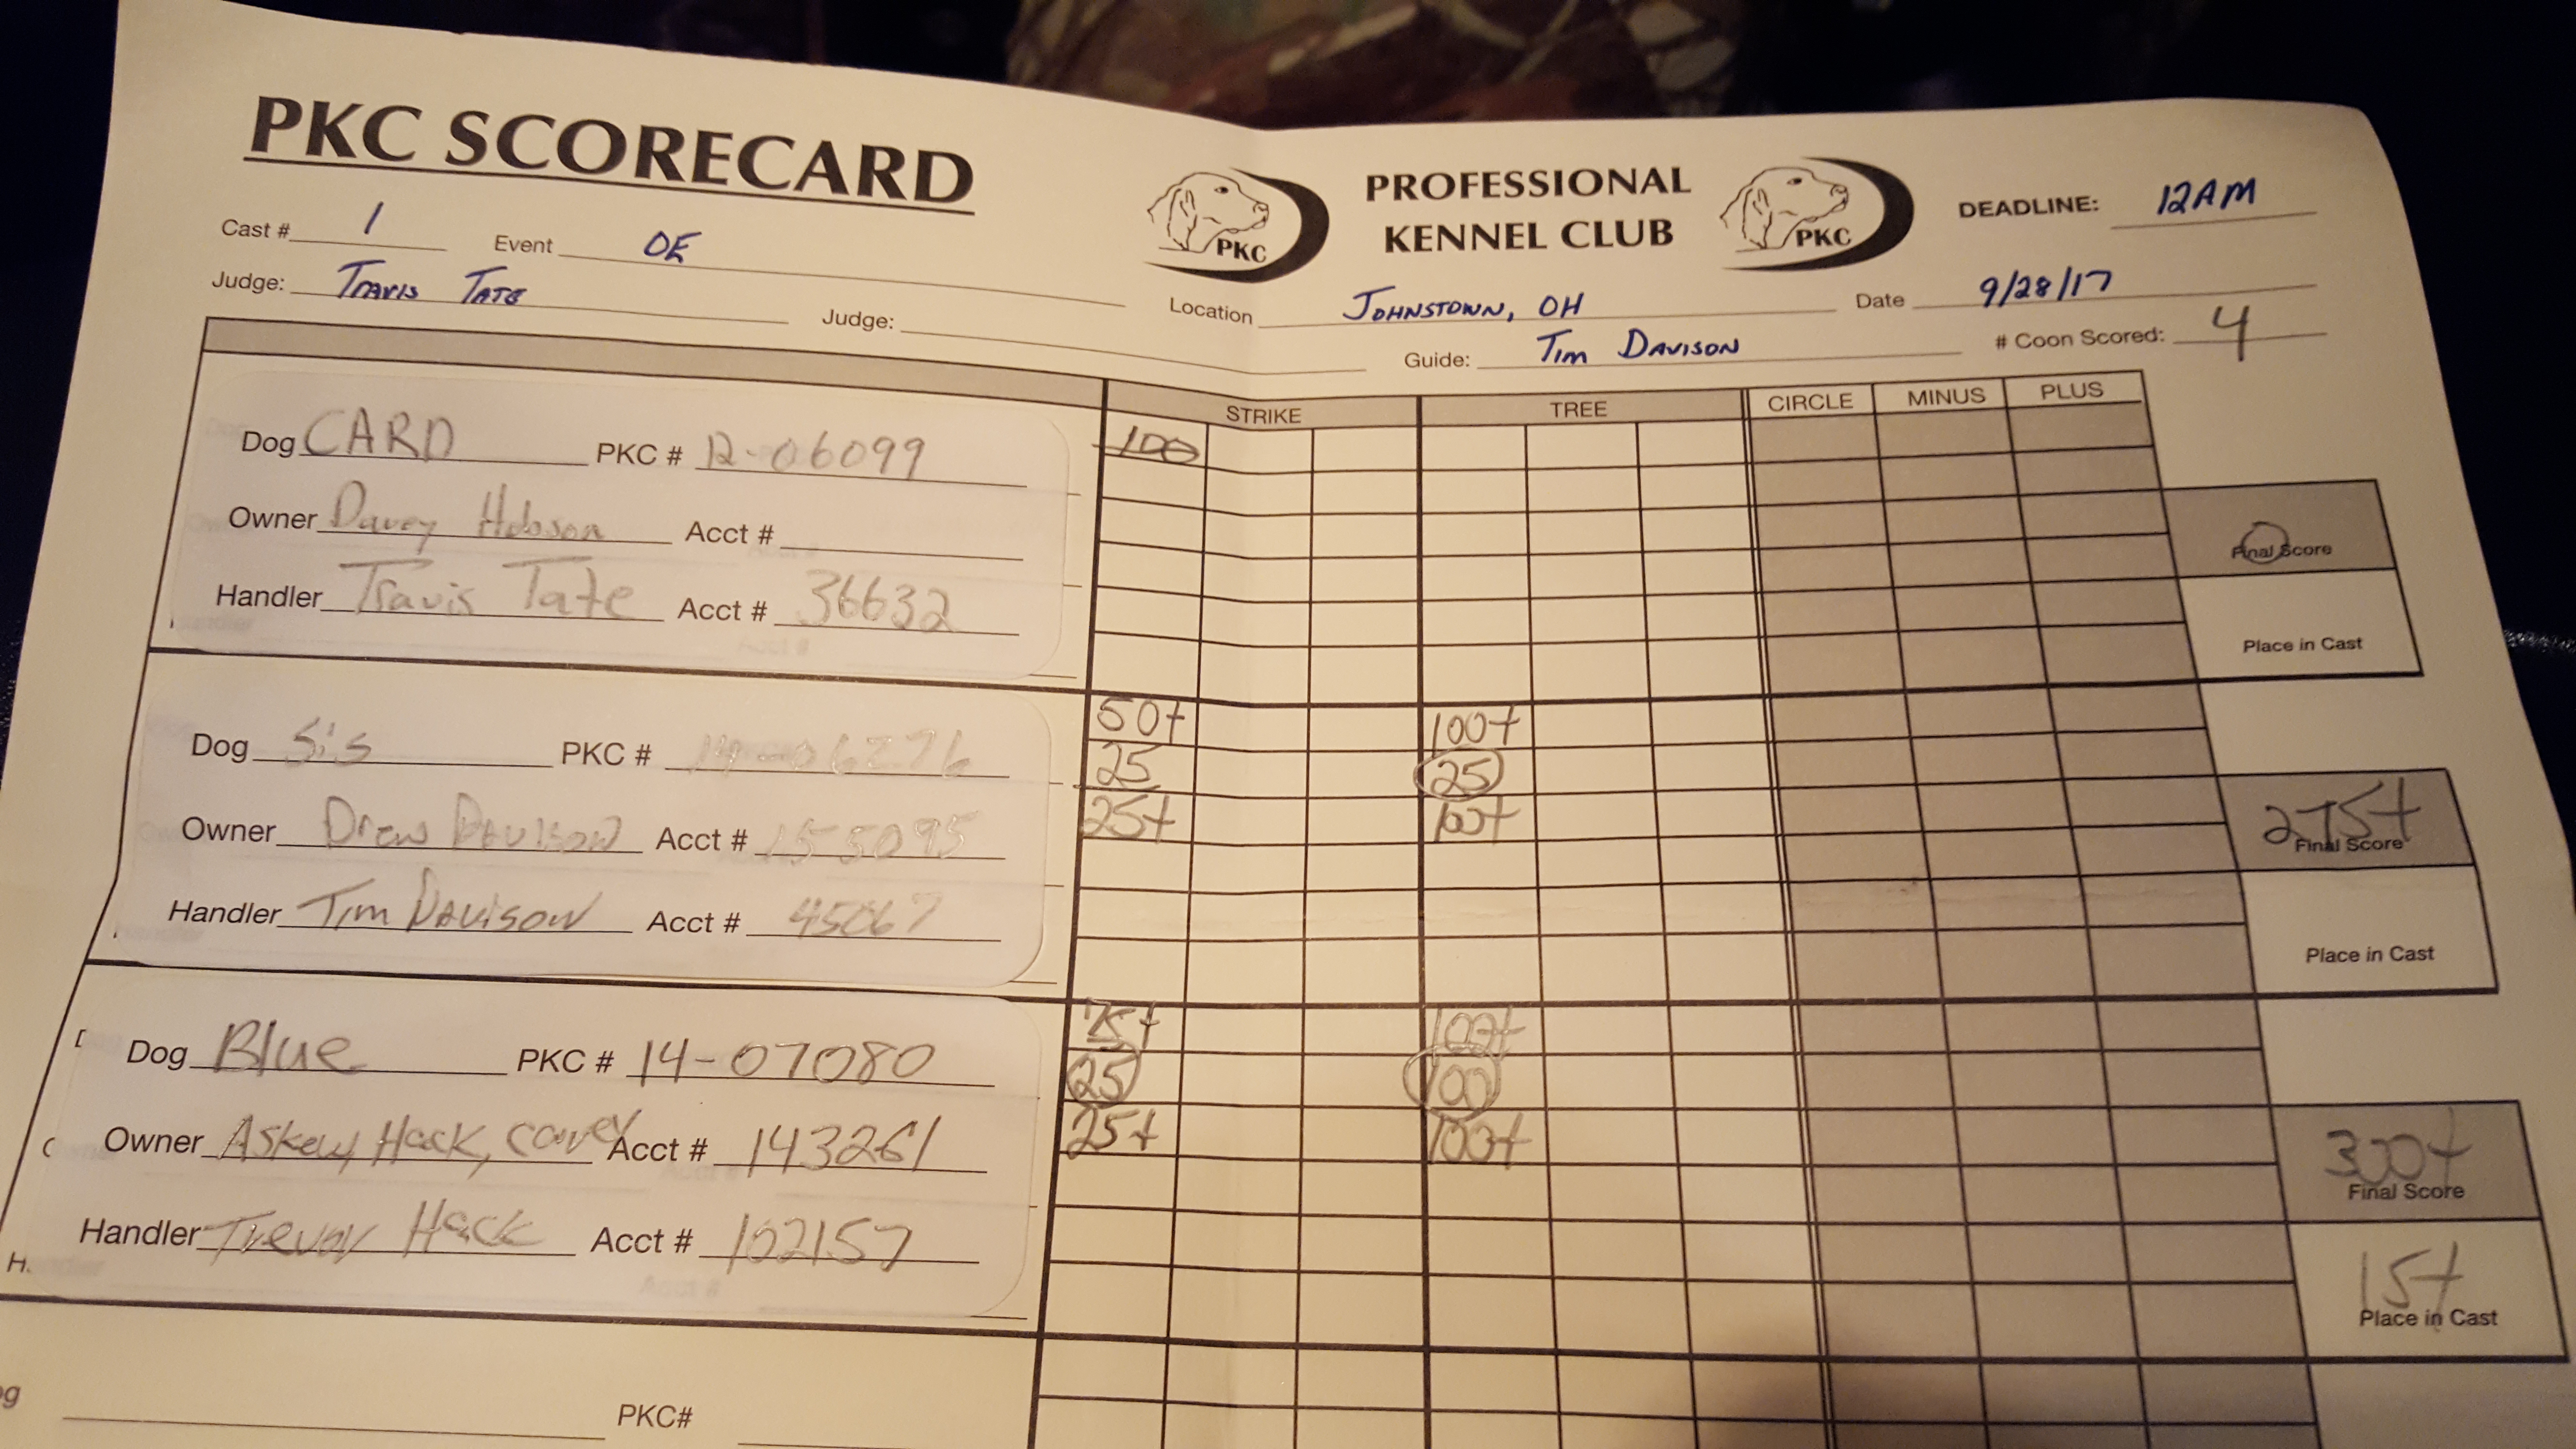 PKC SCORECARD
PROFESSIONAL
KENNEL CLUB
PKC
PKC
DEADLINE: 12AM
Cast # 1 Event OE
Judge: Travis Tate Judge:
Location Johnstown, OH Date 9/28/17
Guide: Tim Davison # Coon Scored: 4
STRIKE TREE CIRCLE MINUS PLUS
Dog CARD PKC # 12-06099 100
Owner Davey Hobson Acct #
Final Score 0
Handler Travis Tate Acct # 36632
Place in Cast
50+ 100+
Dog Sis PKC # 14-06276 25 25
25+ 100+
Owner Drew Davison Acct # 155095
275+ Final Score
Handler Tim Davison Acct # 45067
Place in Cast
75+ 100+
Dog Blue PKC # 14-07080 25 100
Owner Askew, Hack, Covey Acct # 143261 25+ 100+
300+ Final Score
Handler Trevor Hack Acct # 102157
1st Place in Cast
PKC#